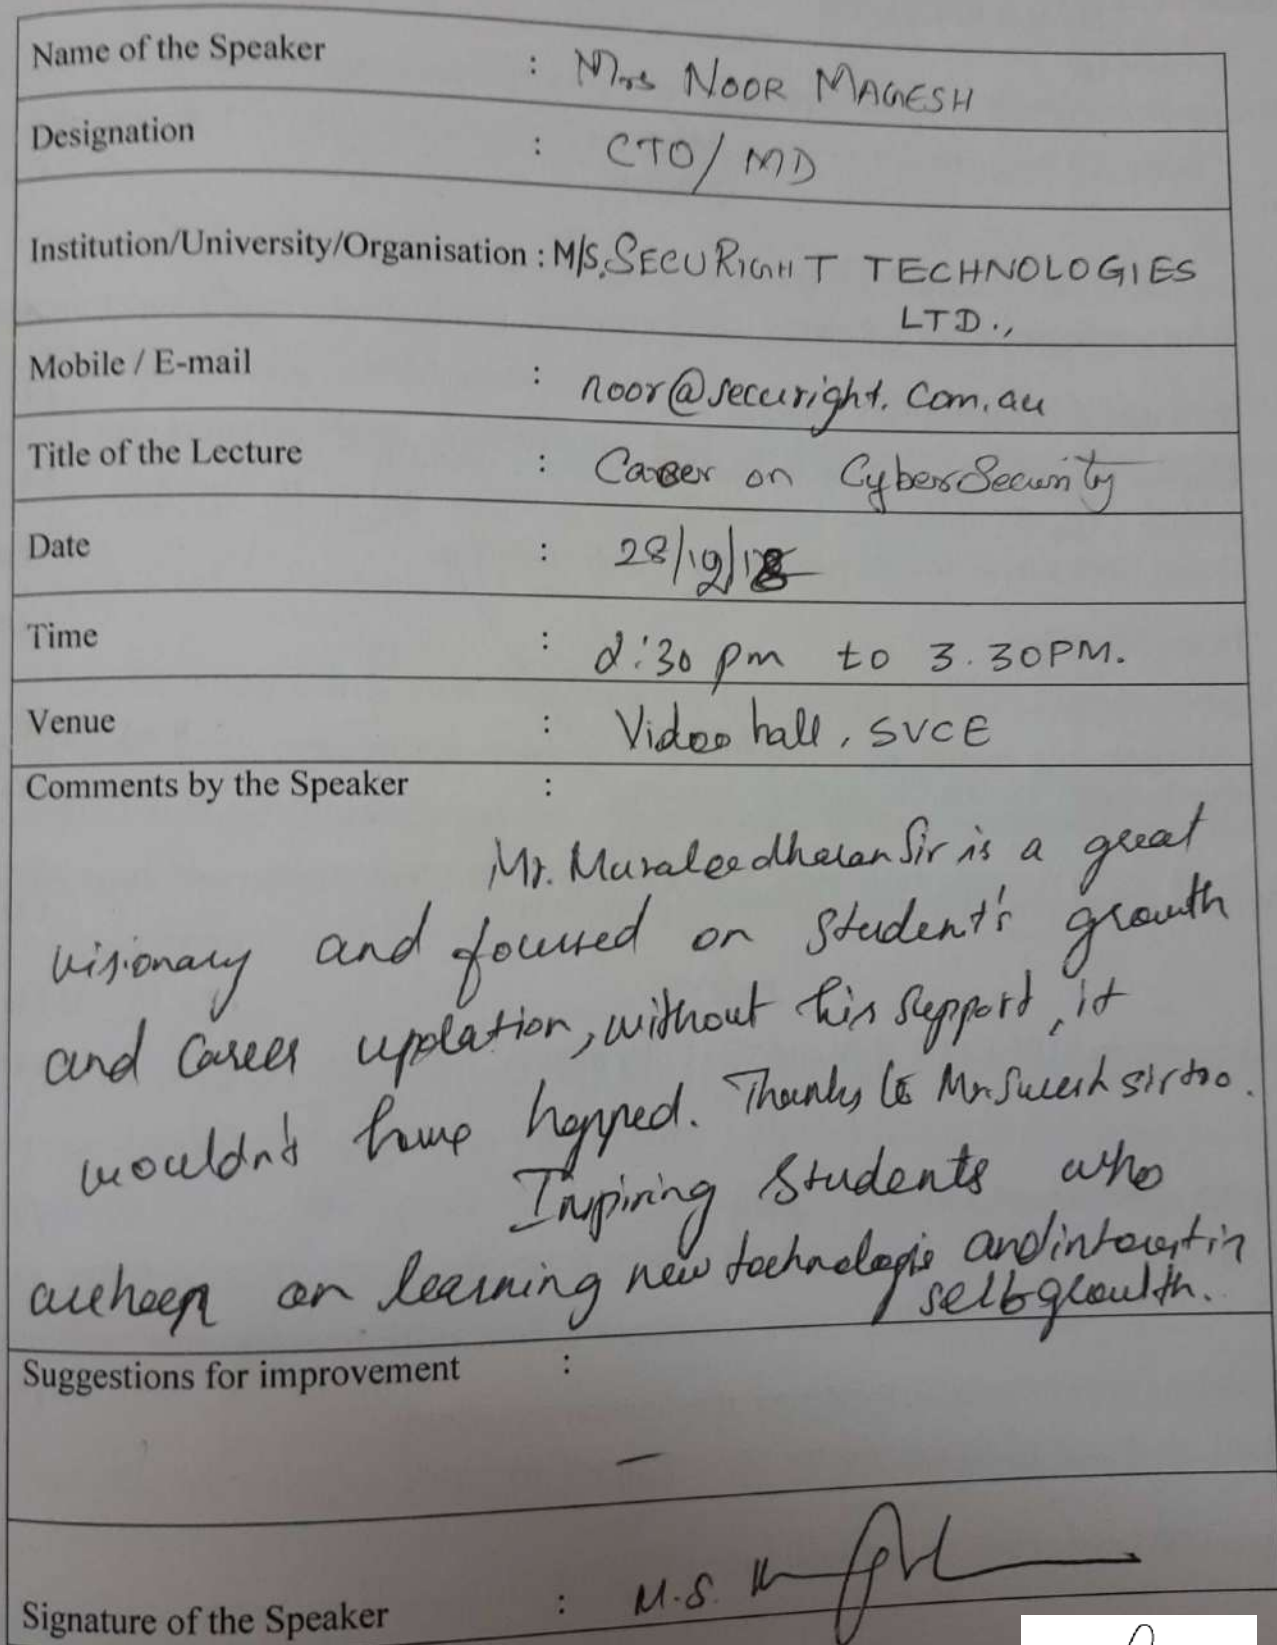 Name of the Speaker : Mrs NOOR MAGESH
Designation : CTO/ MD
Institution/University/Organisation : M/S. SECURIGHT TECHNOLOGIES
LTD.,
Mobile / E-mail : noor@securight.com.au
Title of the Lecture : Career on CyberSecurity
Date : 28/12/18
Time : 2:30 pm to 3.30PM.
Venue : Video hall, SVCE
Comments by the Speaker :
Mr. Muraleedharan Sir is a great
visionary and focused on student's growth
and career updation, without his support, it
wouldn't have happed. Thanks to Mr. Suresh sir too.
Inspiring students who
are keen on learning new technologie and interest in
self growth.
Suggestions for improvement :
—
Signature of the Speaker : M.S.